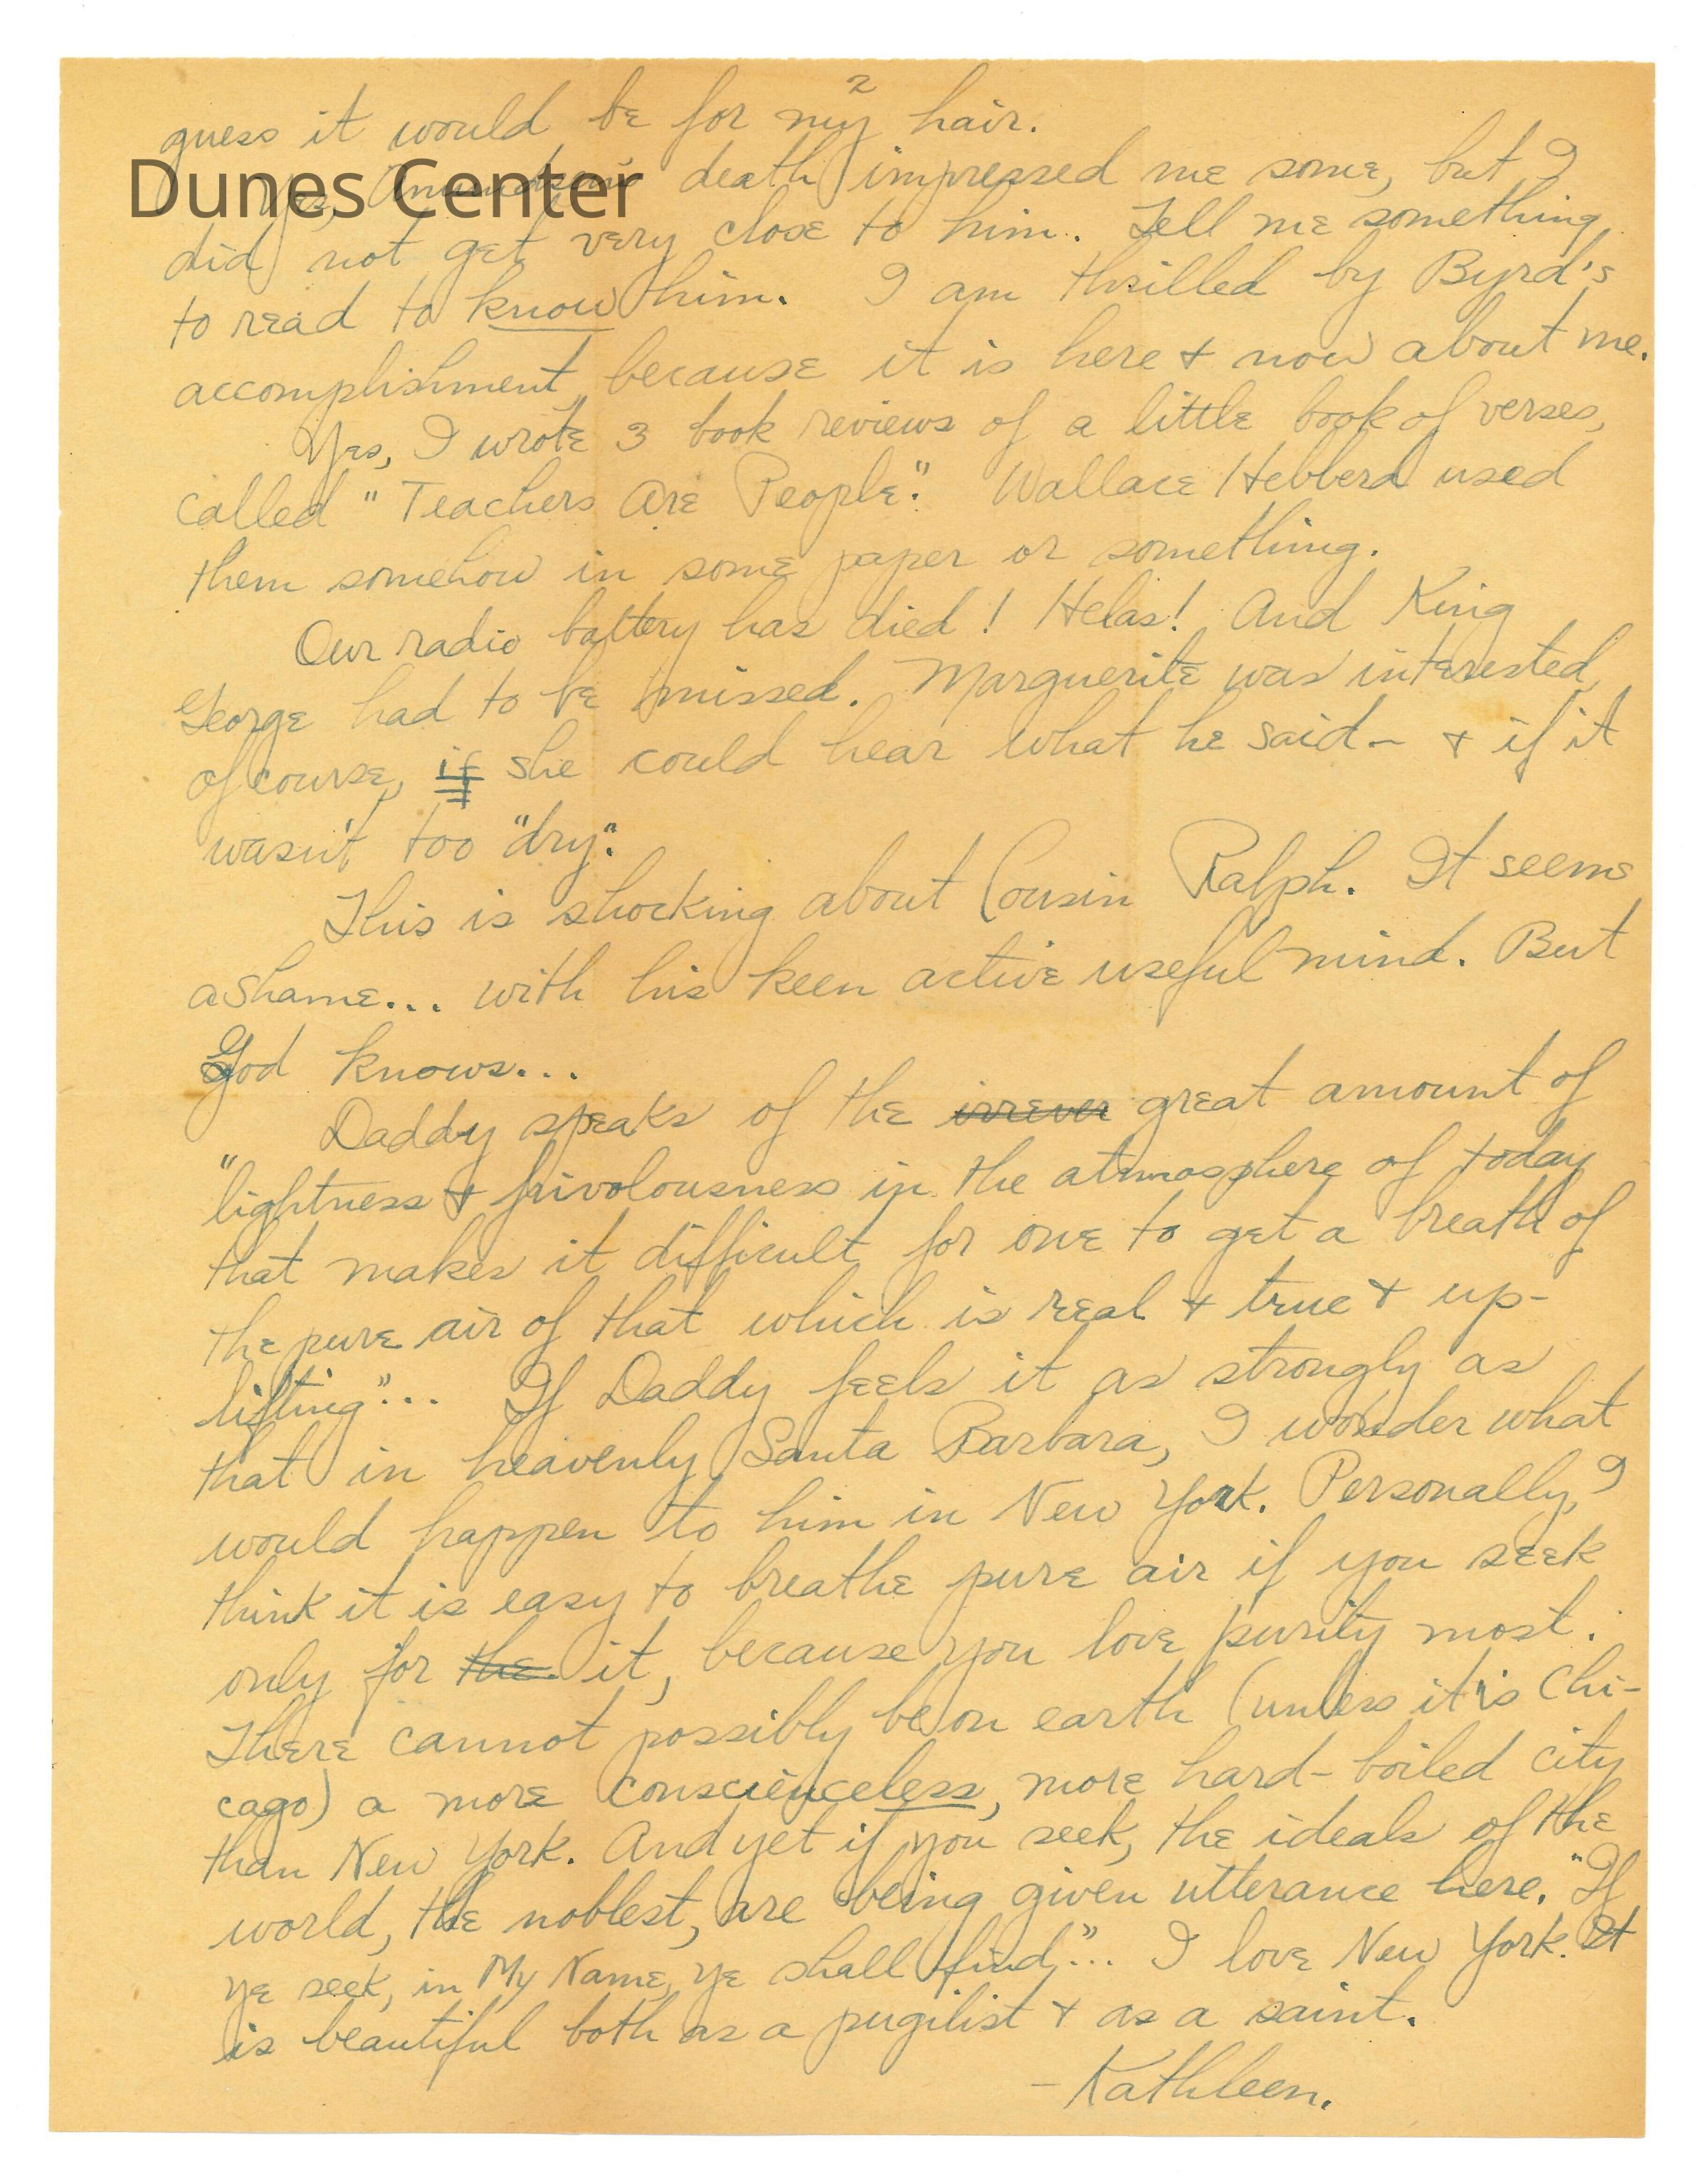 2
guess it would be for my hair.
Dunes Center
Yes, Amundsen's death impressed me some, but I
did not get very close to him. Tell me something
to read to know him. I am thrilled by Byrd's
accomplishment because it is here + now about me.
Yes, I wrote 3 book reviews of a little book of verses,
called "Teachers Are People". Wallace Hebberd used
them somehow in some paper or something.
Our radio battery has died! Helas! And King
George had to be missed. Marguerite was interested,
of course, if she could hear what he said - + if it
wasn't too "dry".
This is shocking about Cousin Ralph. It seems
a shame... with his keen active useful mind. But
God knows...
Daddy speaks of the irrever great amount of
"lightness + frivolousness in the atmosphere of today
that makes it difficult for one to get a breath of
the pure air of that which is real + true + up-
lifting"... If Daddy feels it as strongly as
that in heavenly Santa Barbara, I wonder what
would happen to him in New York. Personally, I
think it is easy to breathe pure air if you seek
only for the it, because you love purity most.
There cannot possibly be on earth (unless it is Chi-
cago) a more conscienceless, more hard-boiled city
than New York. And yet if you seek, the ideals of the
world, the noblest, are being given utterance here. "If
ye seek, in My Name, ye shall find,"... I love New York. It
is beautiful both as a pugilist + as a saint.
- Kathleen.